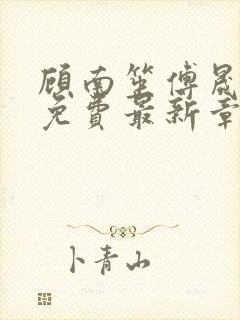 顾南笙傅晟
免费最新章
卜青山